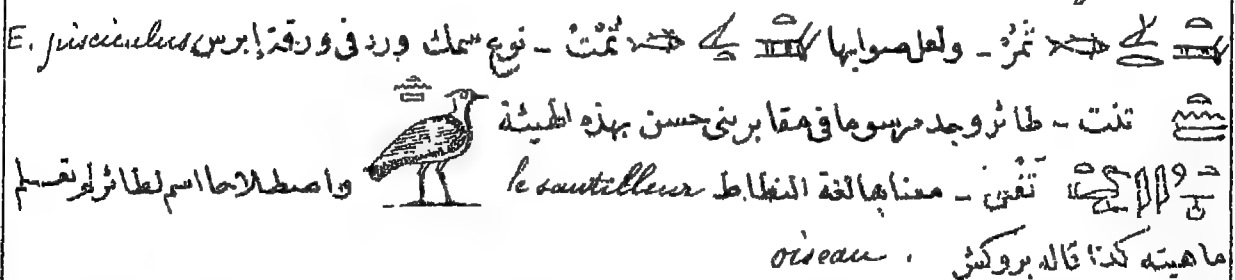 ثمر - ولعل صوابها ثمت - نوع سمك ورد فى ورقة إبرس E. pisciculus
تنت - طائر وجد مرسوما فى مقابر بنى حسن بهذه الهيئة
تفنن - معناها لغة النطاط le sautilleur واصطلاحا اسم لطائر لم تعلم
ماهيته كذا قاله بروكش . oiseau